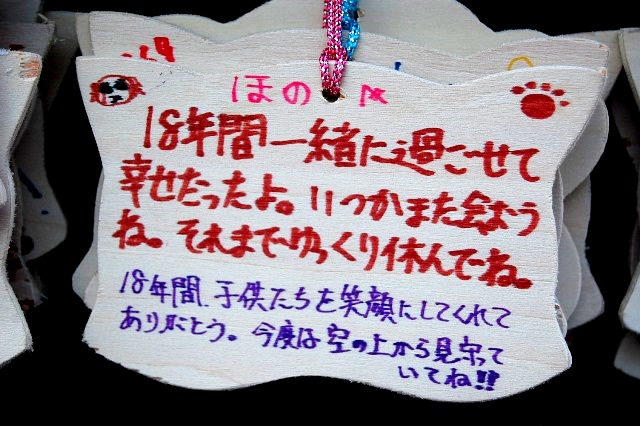 ほの
18年間一緒に過ごせて
幸せだったよ。いつかまた会おう
ね。それまでゆっくり休んでーね。
18年間、子供たちを笑顔にしてくれて
ありがとう。今度は空の上から見守って
いてね!!